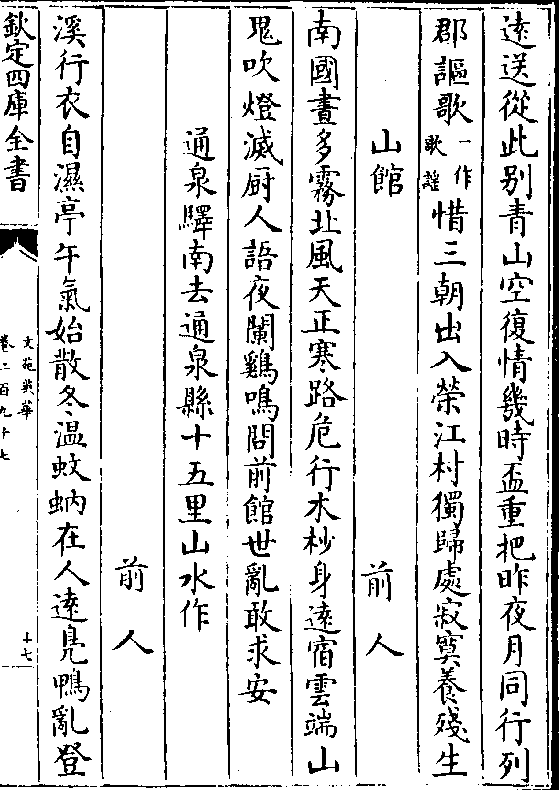 遠送從此别青山空復情幾時盃重把昨夜月同行列
郡謳歌一作歌謡惜三朝出入榮江村獨歸處寂寞養殘生
山館 前人
南國晝多霧北風天正寒路危行木杪身逺宿雲端山
鬼吹燈滅厨人語夜闌鷄鳴問前館世亂敢求安
通泉驛南去通泉縣十五里山水作
前人
溪行衣自濕亭午氣始散冬温蚊蚋在人逺鳬鴨亂登
欽定四庫全書
文苑英華
卷二百九十七
十七